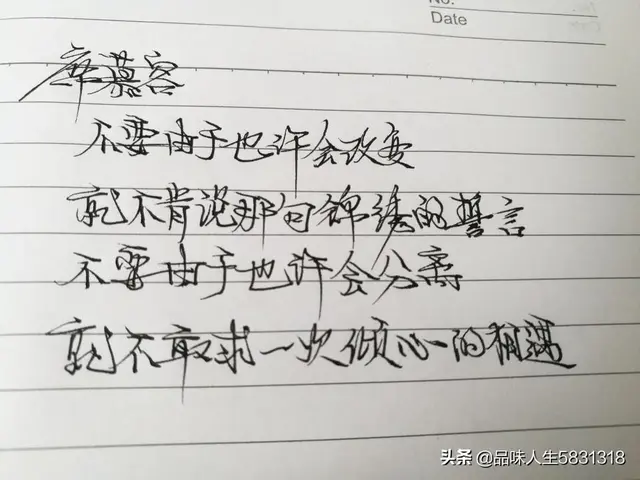 No.
Date
席慕容
不要由于也许会改变
就不肯说那句锦绣的誓言
不要由于也许会分离
就不敢求一次倾心的相遇
头条 @品味人生5831318